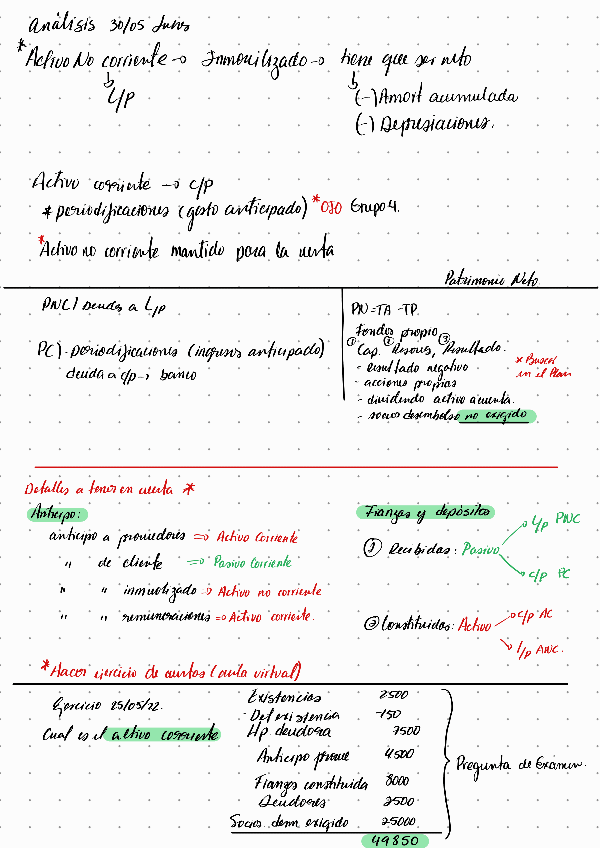 Análisis 30/05 Junros
* Activo No corriente → Inmovilizado → tiene que ser neto
L/p
(-) Amort acumulada
(-) Depresiaciones.
Activo corriente → c/p
* periodificaciones (gasto anticipado) * OJO Grupo 4.
* Activo no corriente mantido para la venta
Patrimonio Neto
PNC) Deudas a L/p
PC) - periodificaciones (ingresos anticipado)
deuda a c/p → banco
PN = TA - TP.
Fondos propio
① Cap. ② Reservas, ③ Resultado.
- resultado negativo
- acciones propias
- dividendo activo a cuenta.
- socios desembolso no exigido
* Buscar
en el Plan
Detalles a tener en cuenta *
Anticipo:
anticipo a proveedores => Activo Corriente
" de cliente => Pasivo Corriente
" " inmovilizado → Activo no corriente
" " remuneraciones => Activo corriente.
Fianzas y depósitos
① Recibidas: Pasivo
L/p PNC
c/p PC
② Constituidas: Activo
c/p AC
L/p ANC.
* Hacer ejercicio de cuentas (aula virtual)
Ejercicio 25/05/22.
Cual es el activo corriente
Existencias 2500
Det existencia -150
Hp deudora 7500
Anticipo provee 4500
Fianzas constituida 8000
Deudores 2500
Socios dem exigido 25000
49850
Pregunta de Examen.